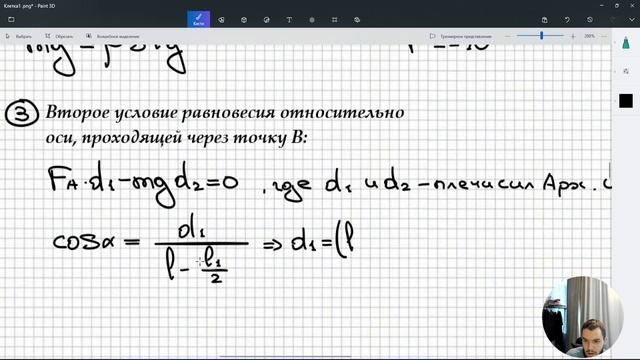 Клетка1.png* - Paint 3D
Кисти
Выбрать
Обрезать
Волшебное выделение
Трехмерное представление
200%
3 Второе условие равновесия относительно
оси, проходящей через точку В:
FA·d1-mgd2=0, где d1 и d2-плечи сил Арх. и
cosα = d1 / (l - l1/2) ⇒ d1=(l